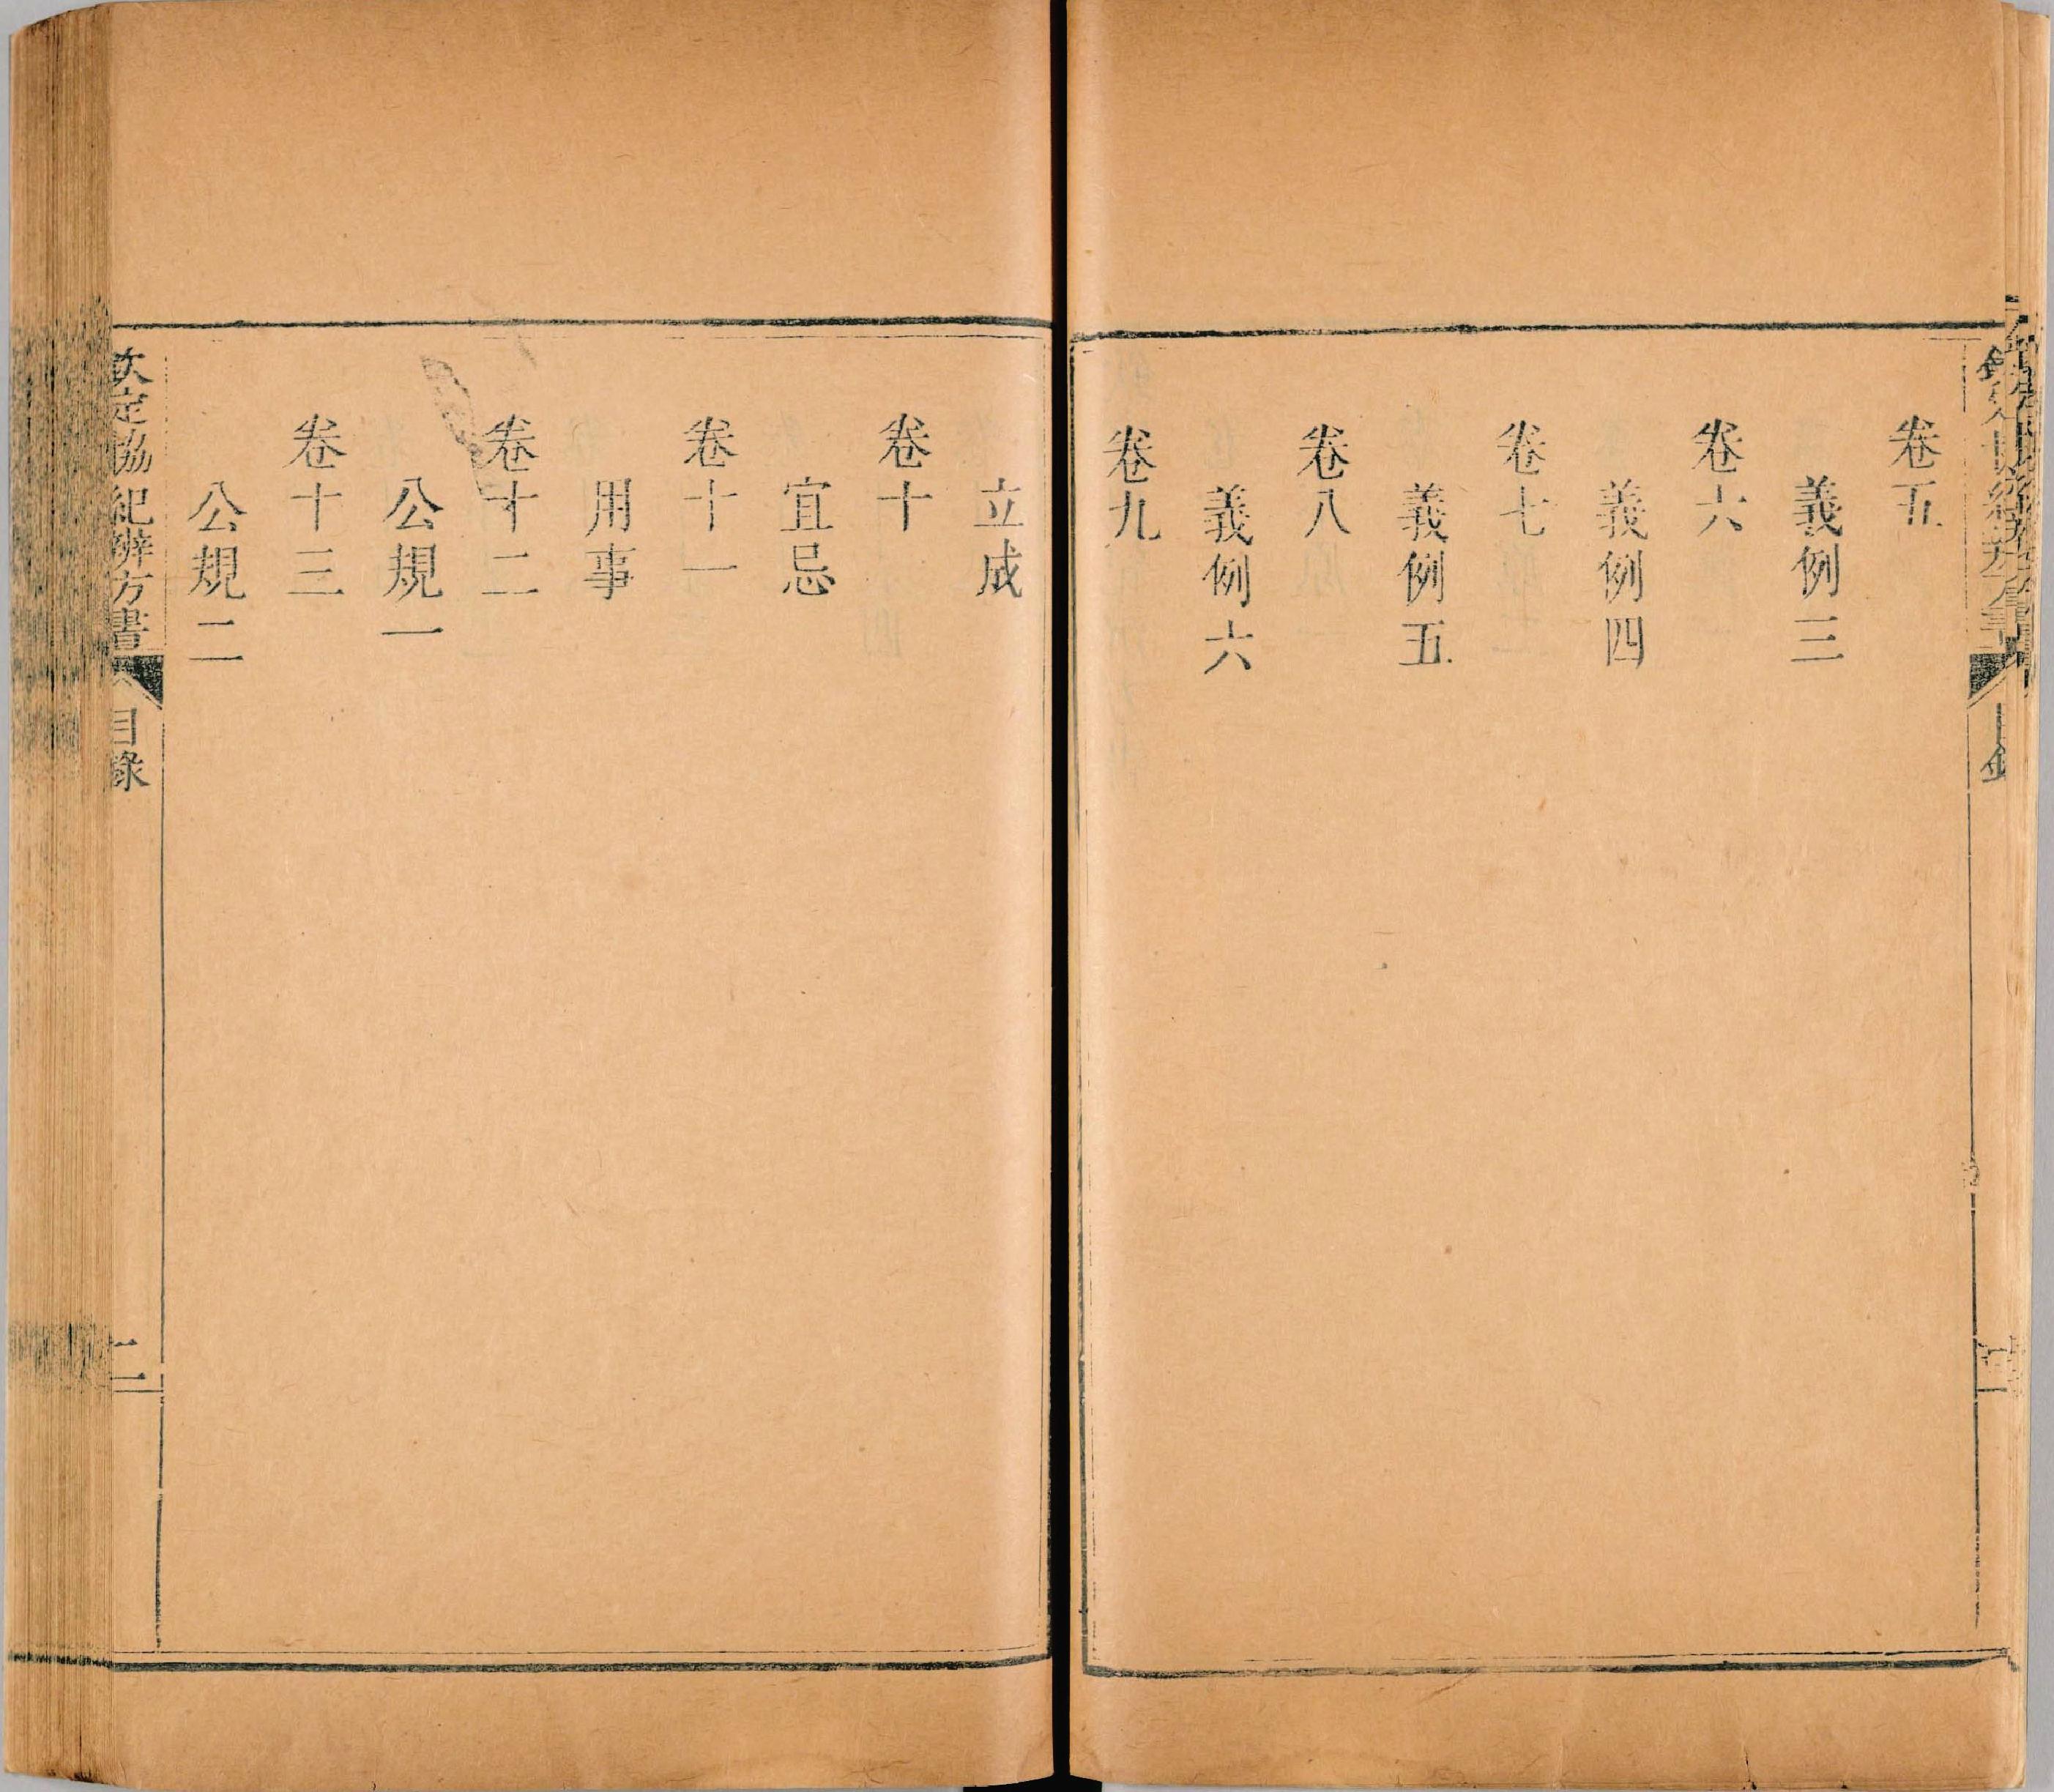 卷五
義例三
卷六
義例四
卷七
義例五
卷八
義例六
卷九
立成
卷十
宜忌
卷十一
用事
卷十二
公規一
卷十三
公規二
欽定協紀辨方書 目錄 二